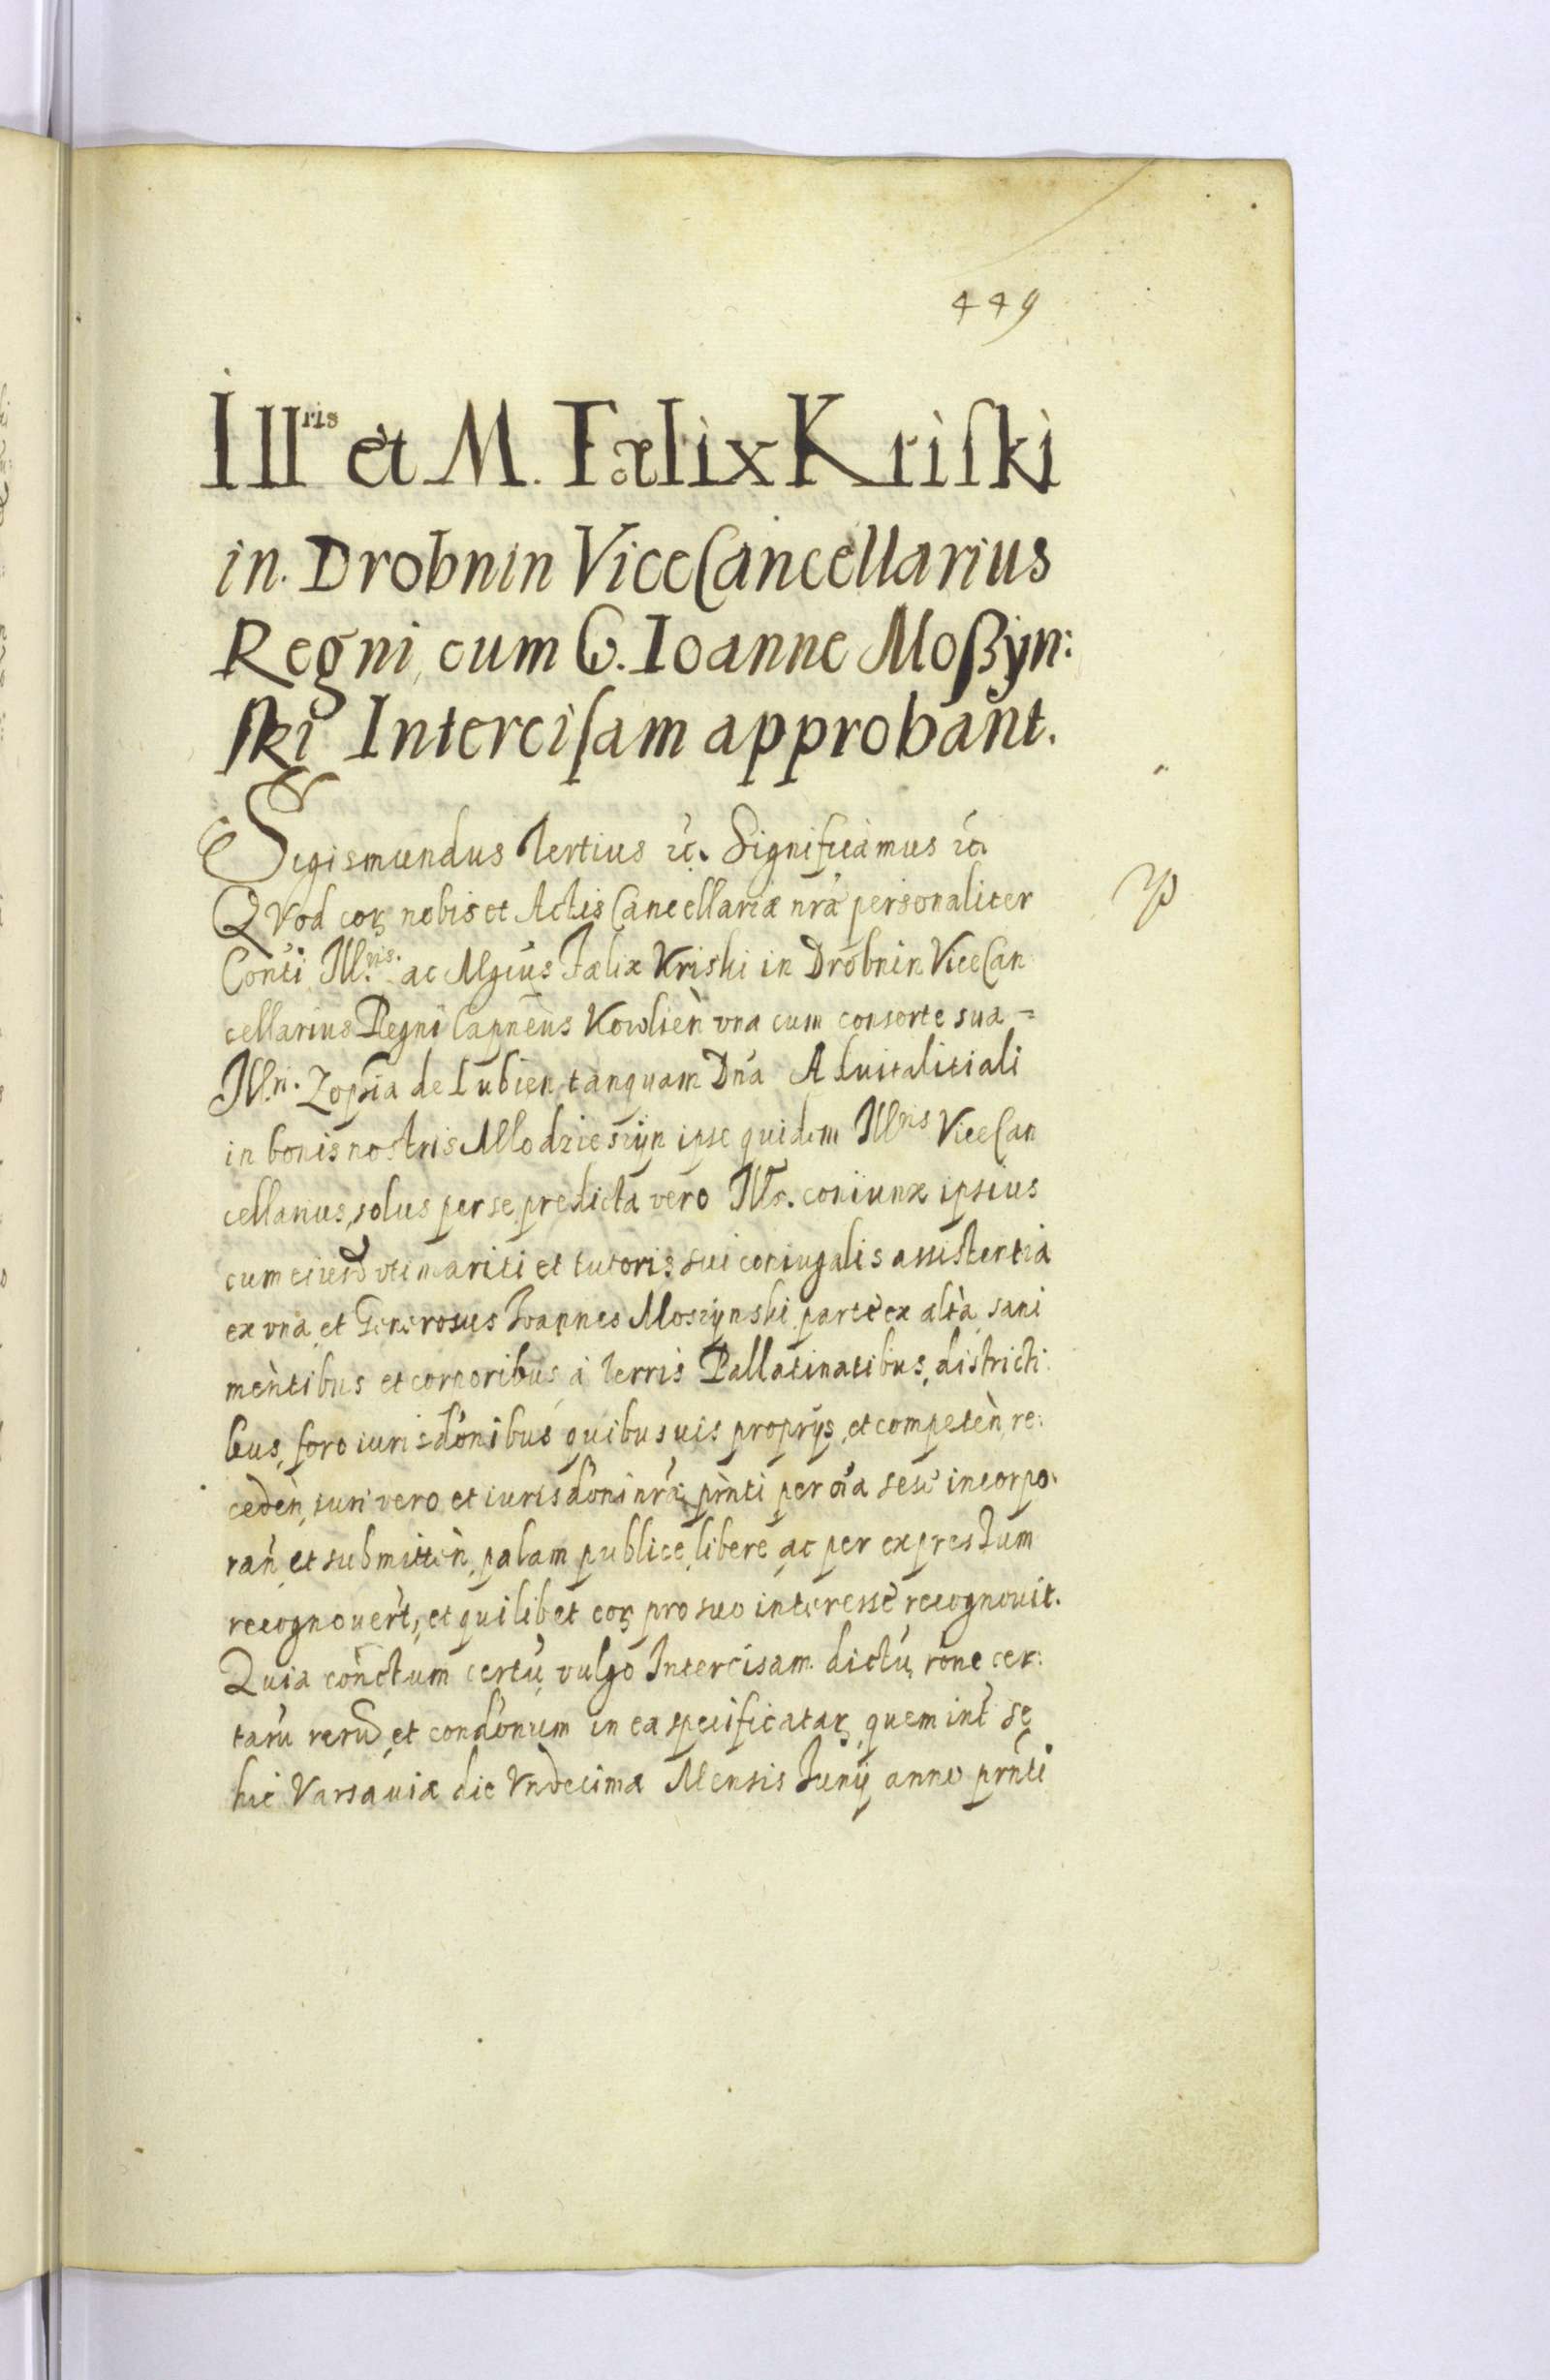 449
Illris et M. Fælix Kriſki
in Drobnin ViceCancellarius
Regni, cum G. Ioanne Moßÿn:
ſki Interciſam approbant.
Sigismundus Tertius etc. Significamus etc.
QVod corꝫ nobis et Actis Cancellariæ nrǽ personaliter
Conti Illris. ac Mgcus Fælix Kriski in Drobnin ViceCan
cellarius Regni Capneus Kowlien vna cum consorte sua =
Illri. Zophia de Lubien tanquam Dna Aduitalitiali
in bonis nostris Mlodzieszÿn ipse quidem Illris ViceCan
cellarius, solus per se predicta vero Ills. coniunx ipsius
cum eiusd vti mariti et tutoris sui coniugalis assistentia
ex vna, et Generosus Ioannes Moszÿnski parte ex altà, sani
mentibus et corporibus à terris Pallatinatibus, districti
bus, foro iurisdónibus quibusuis proprÿs, et competèn, re:
cedèn, iuri vero et iurisdoni nrǽ, prnti per oia sese incorpo:
rań, et submittèn, palam publice, libere, ac per expressum
recognouert, et quilibet eorꝫ pro suo interesse recognouit.
Quia contctum certú vulgo Intercisam dictú, rone cer:
tarú rerú, et condonum in ea specificatarꝫ, quem int se
hic Varsauiæ die Vndecima Mensis Iunÿ anno prnti